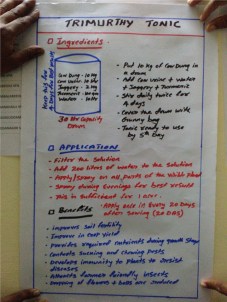 TRIMURTHY TONIC
Ingredients
Cow Dung - 10 Kg
Cow Urine -
Jaggery -
Turmeric -
Water -
30 Ltr Capacity
Drum
Put 10 Kg of Cow Dung in
a Drum
Add Cow Urine + Water
+ Jaggery + Turmeric
Stir daily twice for
4 days
Cover the drum with
Gunny bag
Tonic ready to use
by 5th Day
APPLICATION
Filter the Solution
Add 200 liters of water to the Solution
Apply/Spray on all parts of the
Spray during Evenings for best result
This is sufficient for 1 acre.
Apply once in Every 20 Days
after sowing (20 DAY)
Benefits
Improves Soil fertility
Improve in Crop yield
Provides required nutrients during growth Stage
Controls Sucking and chewing Pests
Develops immunity to Plants to resist
diseases
Attracts farmer friendly insects
Dropping of flowers & buds are reduced